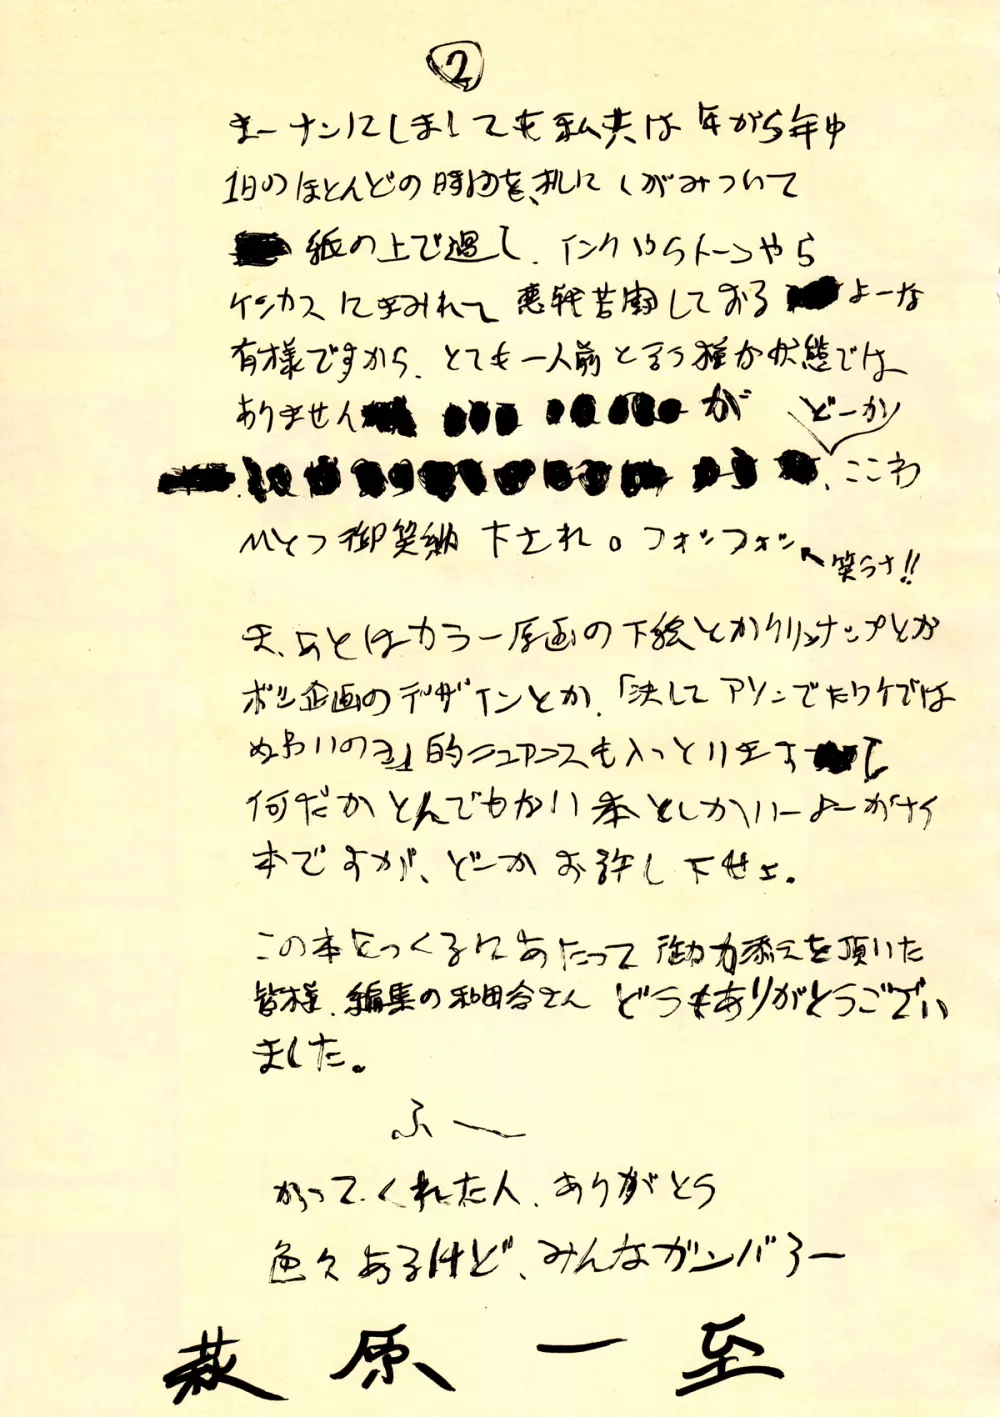 ②
まーナンにしましても私共は年がら年中
1日のほとんどの時間を、机にしがみついて
紙の上で過し、インクやらトーンやら
ケシカスにまみれて悪戦苦闘しておるよーな
有様ですから、とても一人前と言う種な状態では
ありません が どーか
、ここわ
ひとつ御笑納下され。フォンフォン 笑うナ!!
ま、あとはカラー原画の下絵とかクリンナップとか
ボツ企画のデザインとか、「決してアソンでたワケでは
ぬあいのョ」的ニュアンスも入っとりますし
何だかとんでもない本としかいーよーがナイ
本ですが、どーかお許し下せェ。
この本をつくるにあたって御力添えを頂いた
皆様、編集の和田 さん どうもありがとうござい
ました。
ふー
かってくれた人、ありがとう
色々あるけど、みんなガンバろー
萩原一至